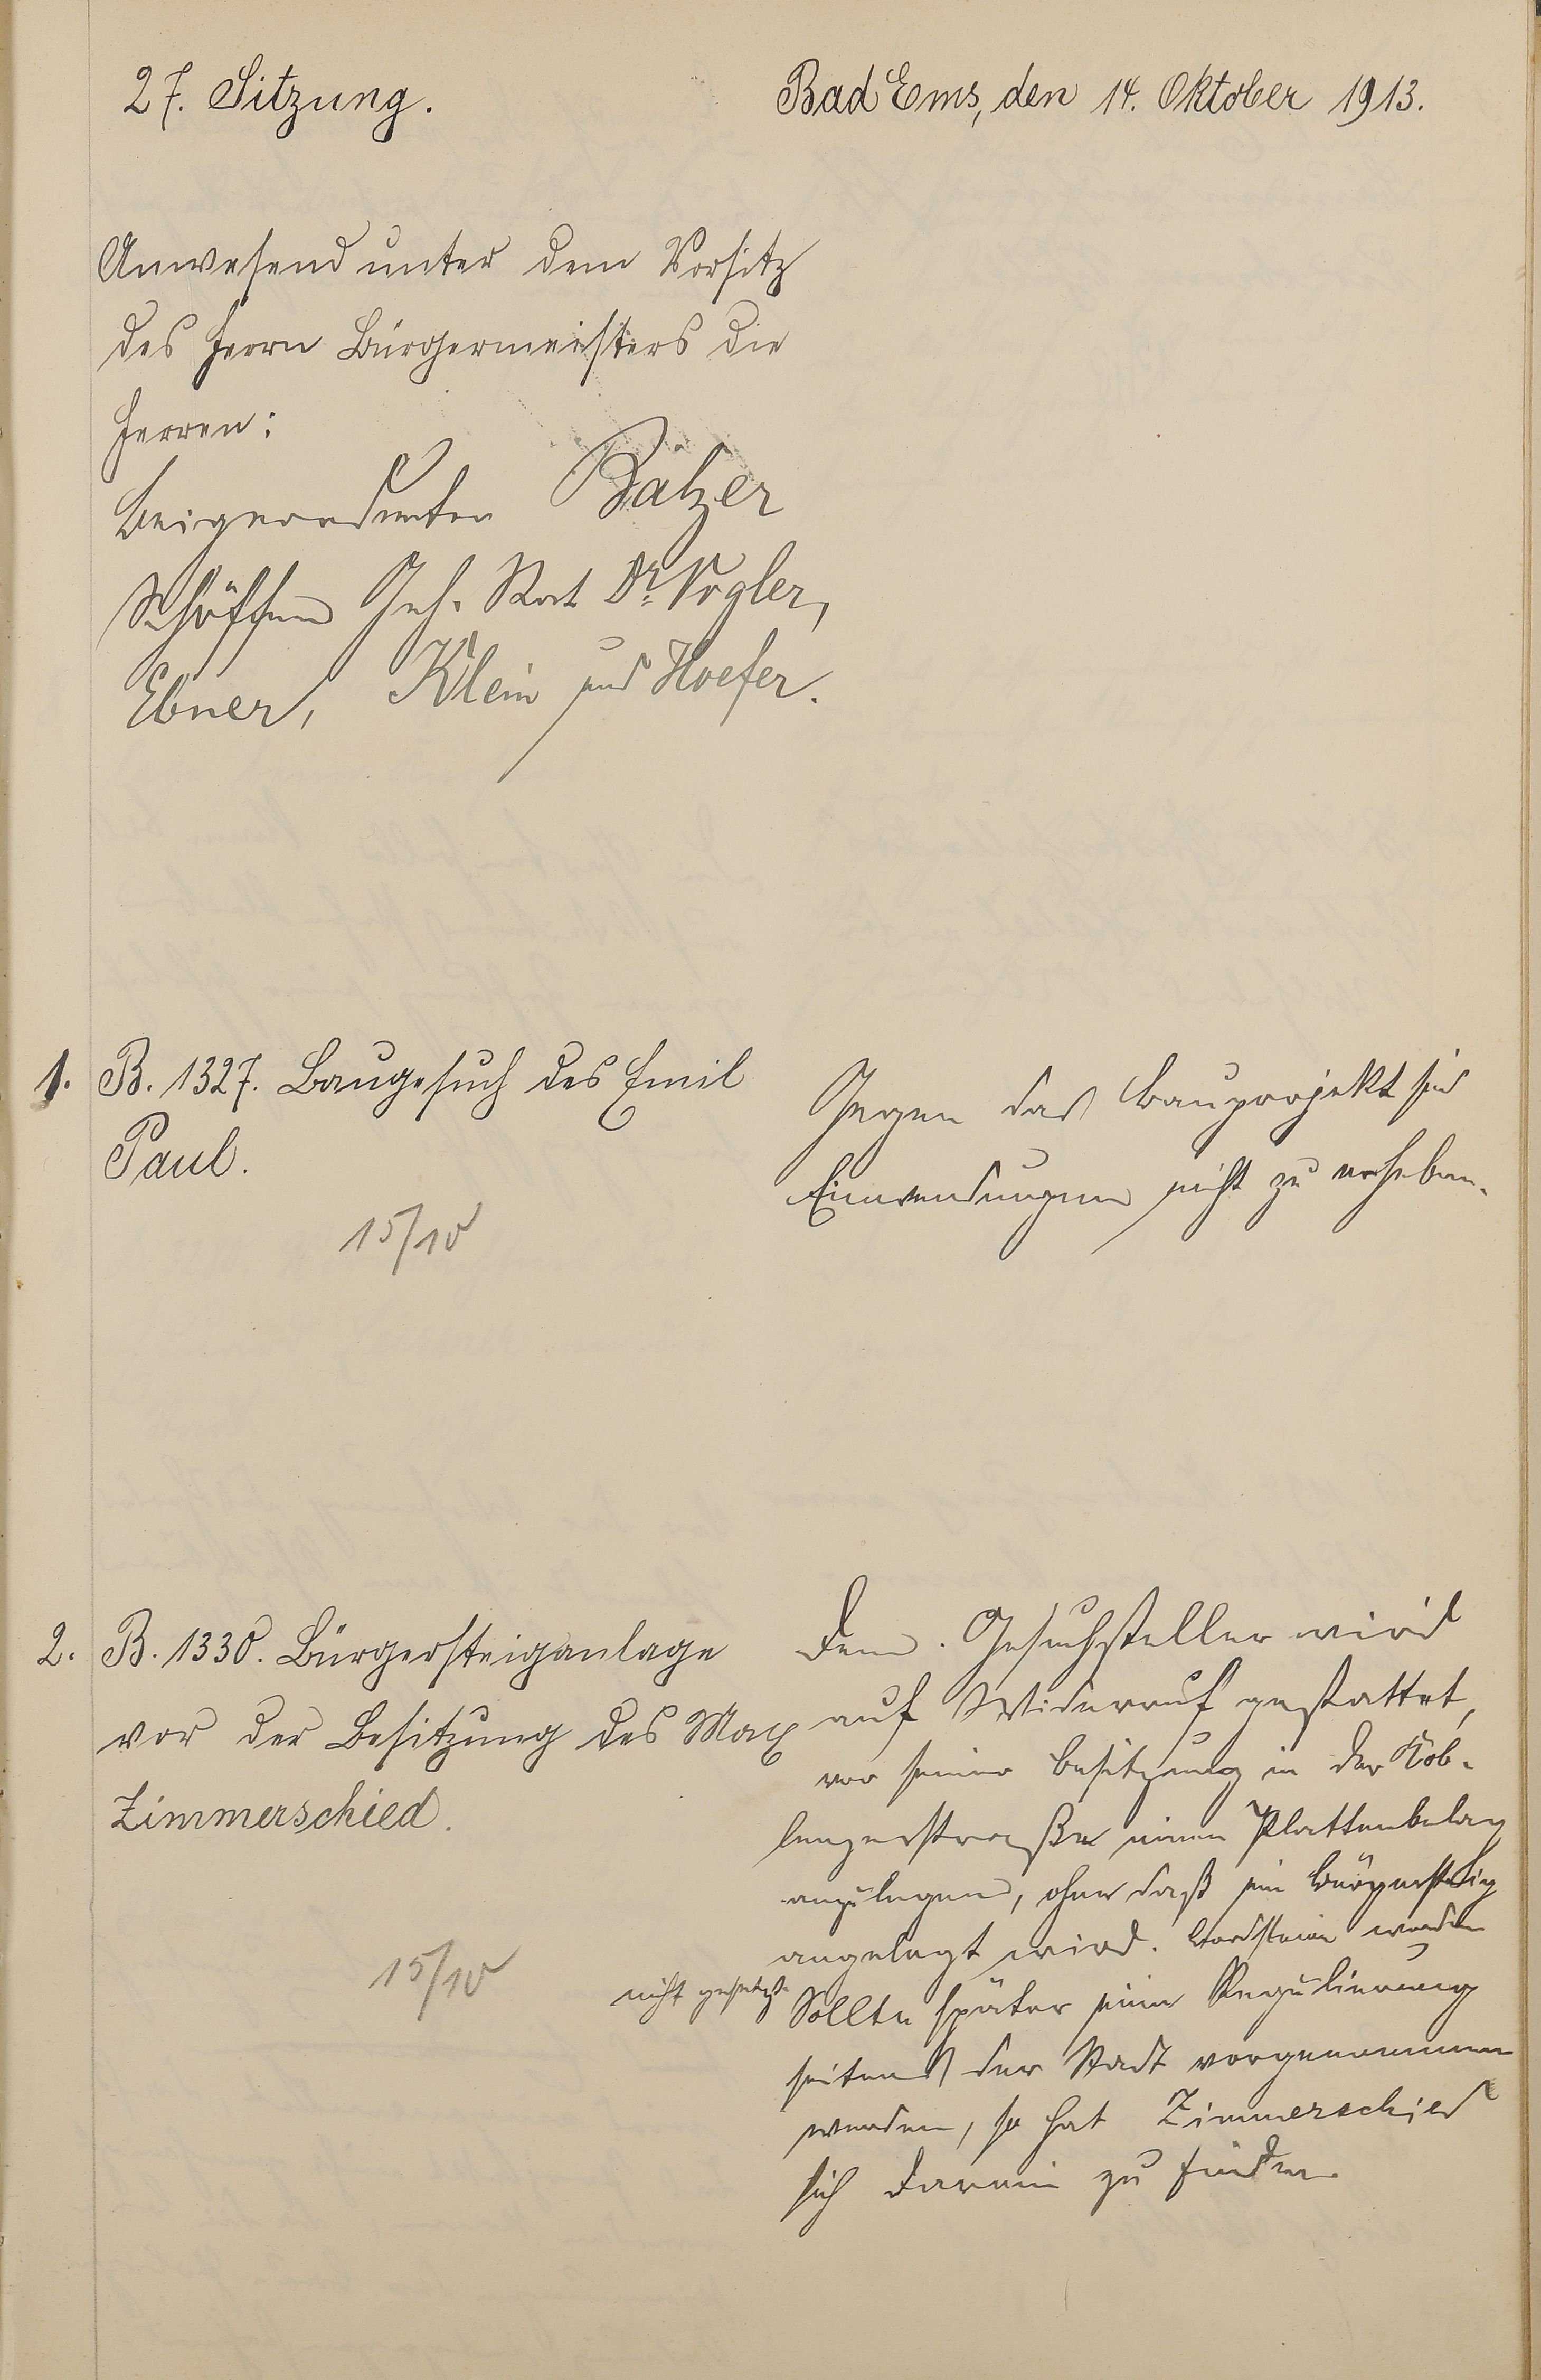 27. Sitzung.
Bad Ems, den 14. Oktober 1913.
Anwesend unter dem Vorsitz
des Herrn Bürgermeisters die
Herren:
Beigeordneter Balzer
Schöffen Geh. Rat Dr. Vogler,
Ebner, Klein und Hoefer.
1. B. 1327. Baugesuch des Emil
Paul.
15/10
Gegen das Bauprojekt sind
Einwendungen nicht zu erheben.
2. B. 1330. Bürgersteiganlage
vor der Besitzung des Max
Zimmerschied.
15/10
Dem Gesuchsteller wird
auf Widerruf gestattet,
vor seiner Besitzung in der Kob-
lenzerstraße einen Plattenbelag
anzulegen, ohne daß ein Bürgersteig
angelegt wird. Bordsteine werden
nicht gesetzt.
Sollte später eine Regulierung
seitens der Stadt vorgenommen
werden, so hat Zimmerschied
sich darein zu finden.